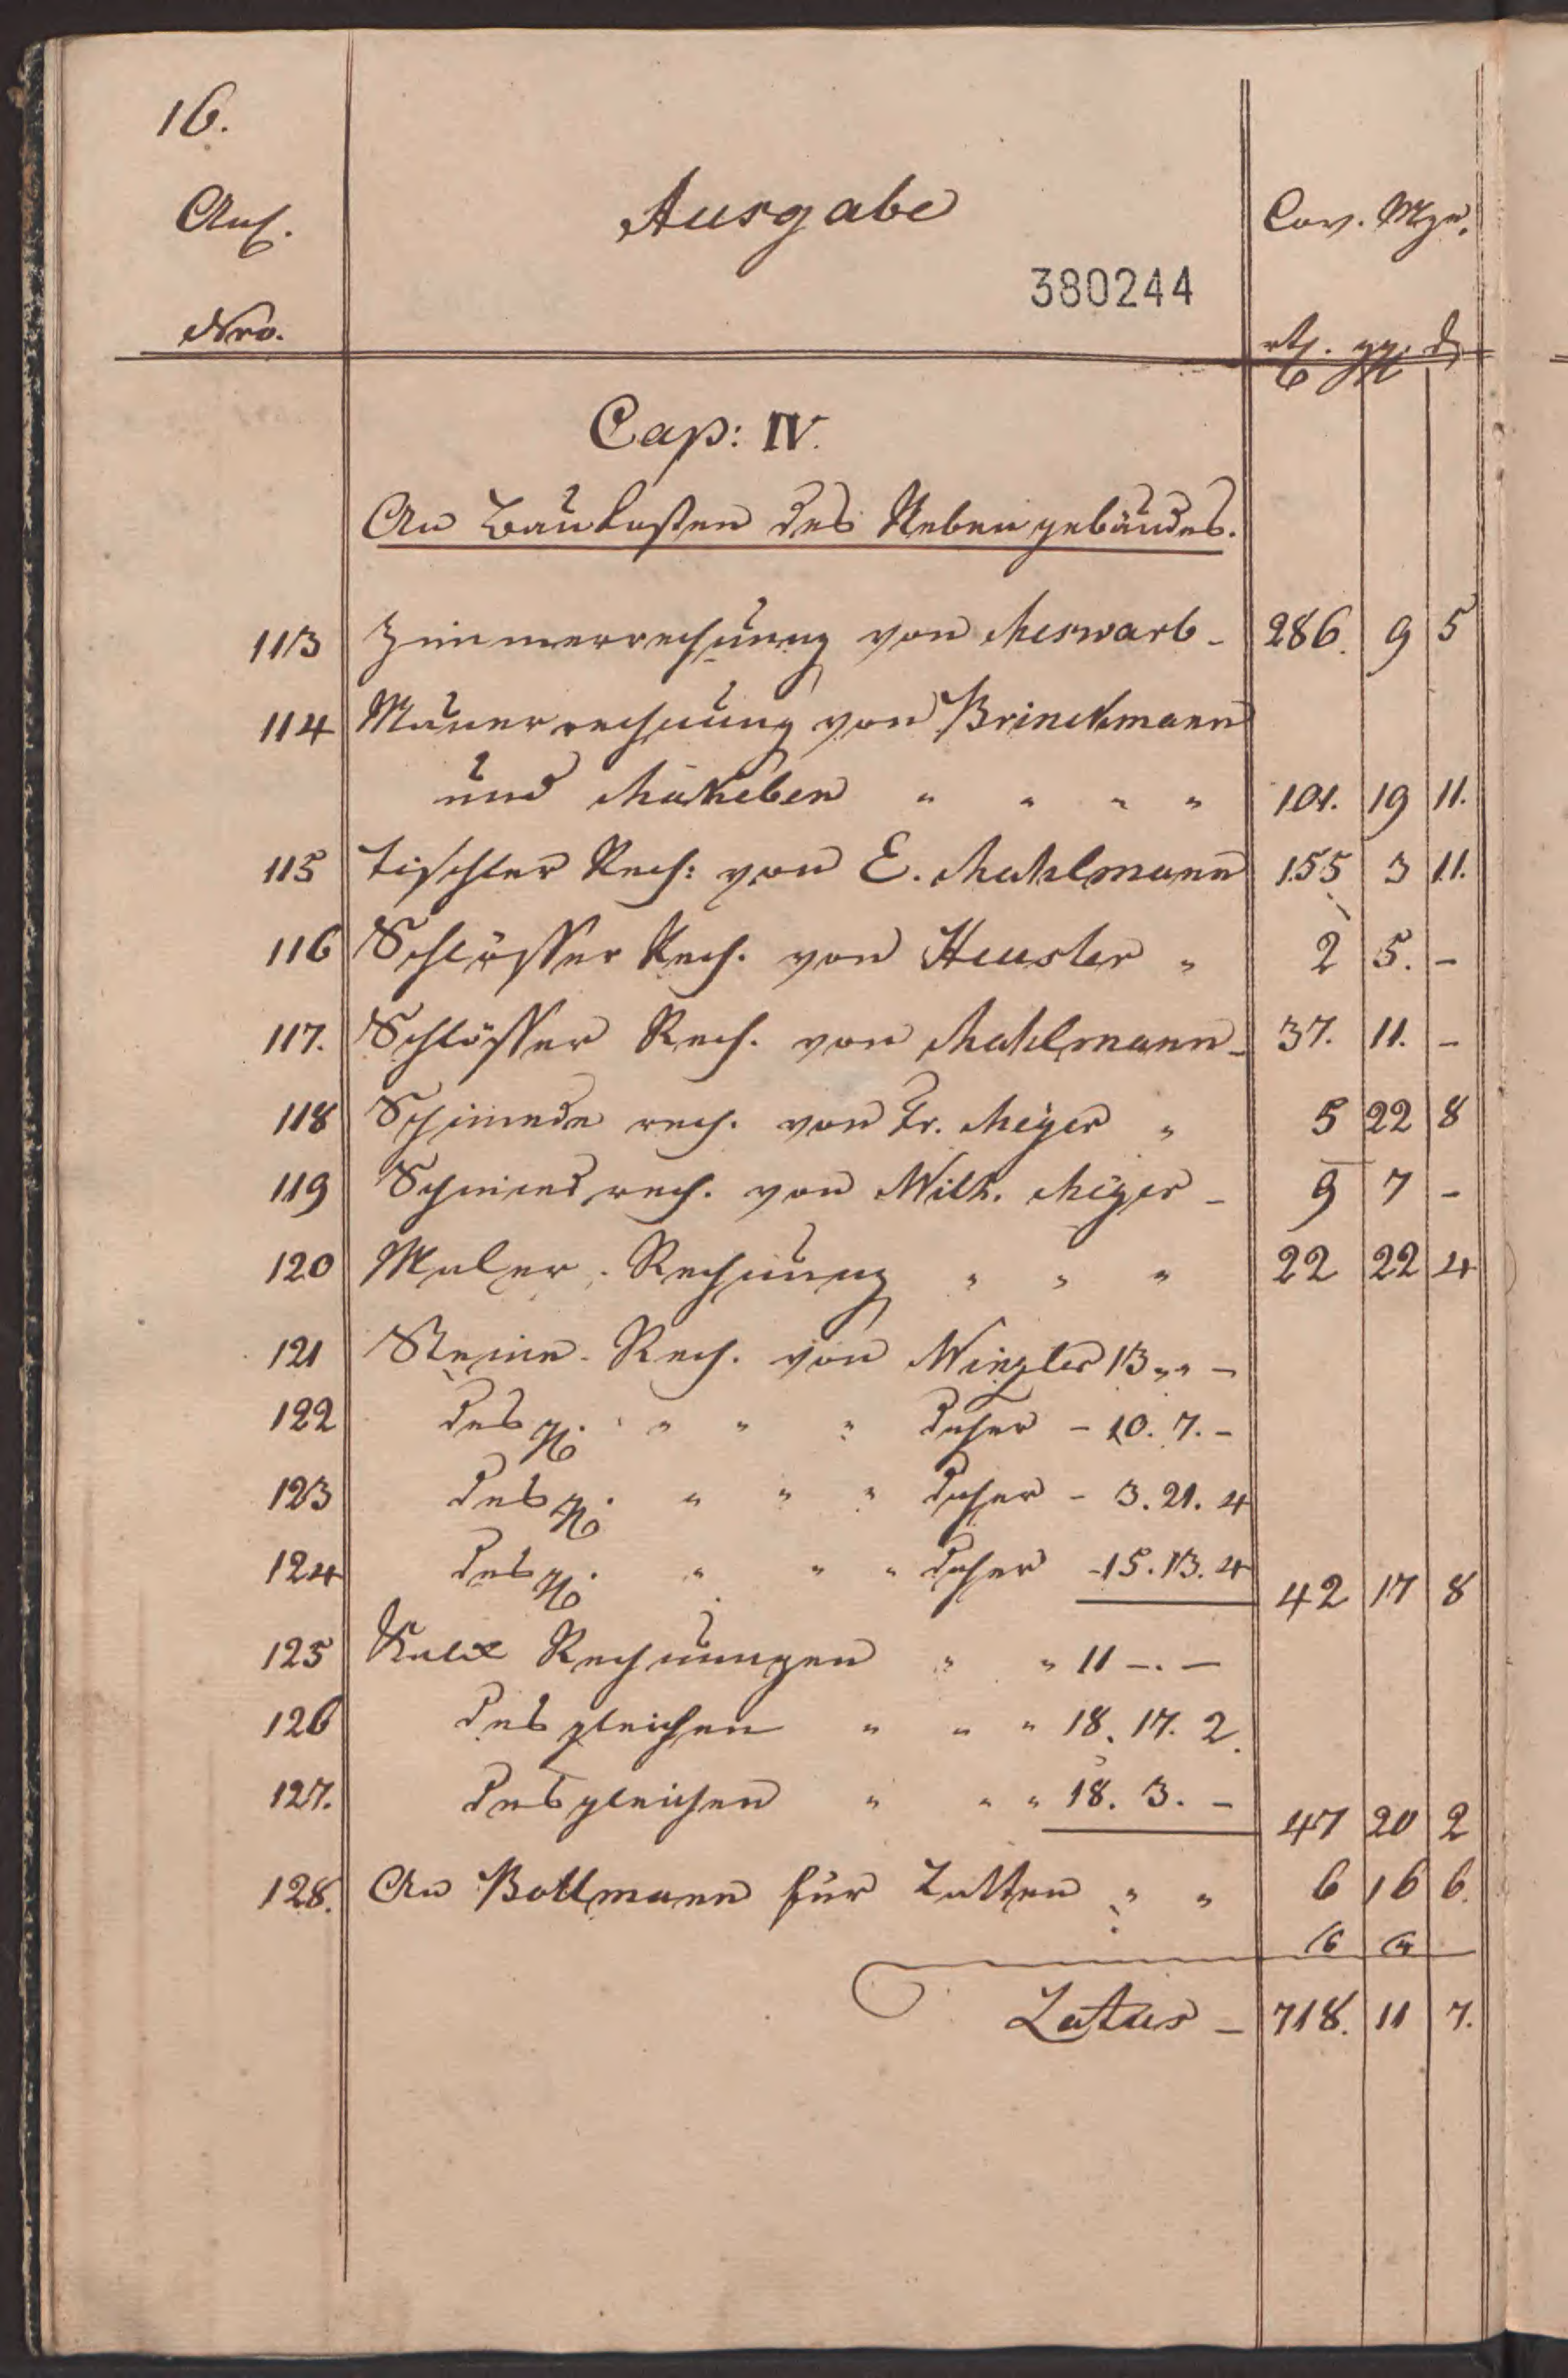 16.
Anl.
Ausgabe
Cov. Mze.
380244
Nro.
rth. ggr. d
Cap: IV.
An Baukosten des Nebengebäudes.
113 Zimmerrechnung von Meswarb - 286. 9 5
114 Maurerrechnung von Brinckmann
und Makeben " " " " 101. 19 11.
115 Tischler Rech: von E. Mahlmann 155 3 11.
116 Schlösser Rech. von Heusler " 2 5. -
117. Schlösser Rech. von Mahlmann - 37. 11. -
118 Schmiede rech. von Fr. Meyer " 5 22 8
119 Schmied rech. von Wilh. Meyer - 9 7 -
120 Maler - Rechnung " " " 22 22 4
121 Steine - Rech. von Winzler 13 " " -
122 desgl. " " " daher - 10. 7. -
123 desgl. " " " daher - 3. 21. 4
124 desgl. " " " daher - 15. 13. 4 42 17 8
125 Kalk Rechnungen " " 11 -. -
126 desgleichen " " " 18. 17. 2.
127. desgleichen " " " 18. 3. - 47 20 2
128. An Bollmann für Latten " " 6 16 6.
Latus - 718. 11 7.